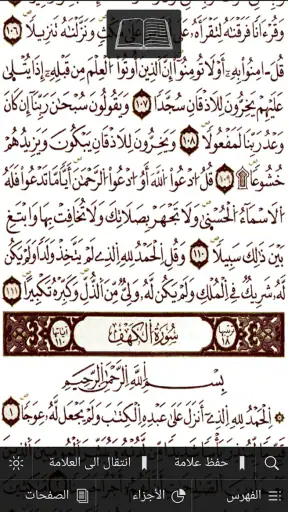 وَقُرْءَانًا فَرَقْنَٰهُ لِتَقْرَأَهُۥ عَلَى ٱلنَّاسِ عَلَىٰ مُكْثٍ وَنَزَّلْنَٰهُ تَنزِيلًا ١٠٦
قُلْ ءَامِنُوا۟ بِهِۦٓ أَوْ لَا تُؤْمِنُوٓا۟ إِنَّ ٱلَّذِينَ أُوتُوا۟ ٱلْعِلْمَ مِن قَبْلِهِۦٓ إِذَا يُتْلَىٰ
عَلَيْهِمْ يَخِرُّونَ لِلْأَذْقَانِ سُجَّدًا ١٠٧ وَيَقُولُونَ سُبْحَٰنَ رَبِّنَآ إِن كَانَ
وَعْدُ رَبِّنَا لَمَفْعُولًا ١٠٨ وَيَخِرُّونَ لِلْأَذْقَانِ يَبْكُونَ وَيَزِيدُهُمْ
خُشُوعًا ۩ ١٠٩ قُلِ ٱدْعُوا۟ ٱللَّهَ أَوِ ٱدْعُوا۟ ٱلرَّحْمَٰنَ أَيًّا مَّا تَدْعُوا۟ فَلَهُ
ٱلْأَسْمَآءُ ٱلْحُسْنَىٰ وَلَا تَجْهَرْ بِصَلَاتِكَ وَلَا تُخَافِتْ بِهَا وَٱبْتَغِ
بَيْنَ ذَٰلِكَ سَبِيلًا ١١٠ وَقُلِ ٱلْحَمْدُ لِلَّهِ ٱلَّذِى لَمْ يَتَّخِذْ وَلَدًا وَلَمْ يَكُن
لَّهُۥ شَرِيكٌ فِى ٱلْمُلْكِ وَلَمْ يَكُن لَّهُۥ وَلِىٌّ مِّنَ ٱلذُّلِّ وَكَبِّرْهُ تَكْبِيرًا ١١١
ترتيبها ١٨ سُورَةُ الكَهْفِ آياتها ١١٠
بِسْمِ ٱللَّهِ ٱلرَّحْمَٰنِ ٱلرَّحِيمِ
ٱلْحَمْدُ لِلَّهِ ٱلَّذِىٓ أَنزَلَ عَلَىٰ عَبْدِهِ ٱلْكِتَٰبَ وَلَمْ يَجْعَل لَّهُۥ عِوَجَا ١
حفظ علامة انتقال الى العلامة
الفهرس الأجزاء الصفحات